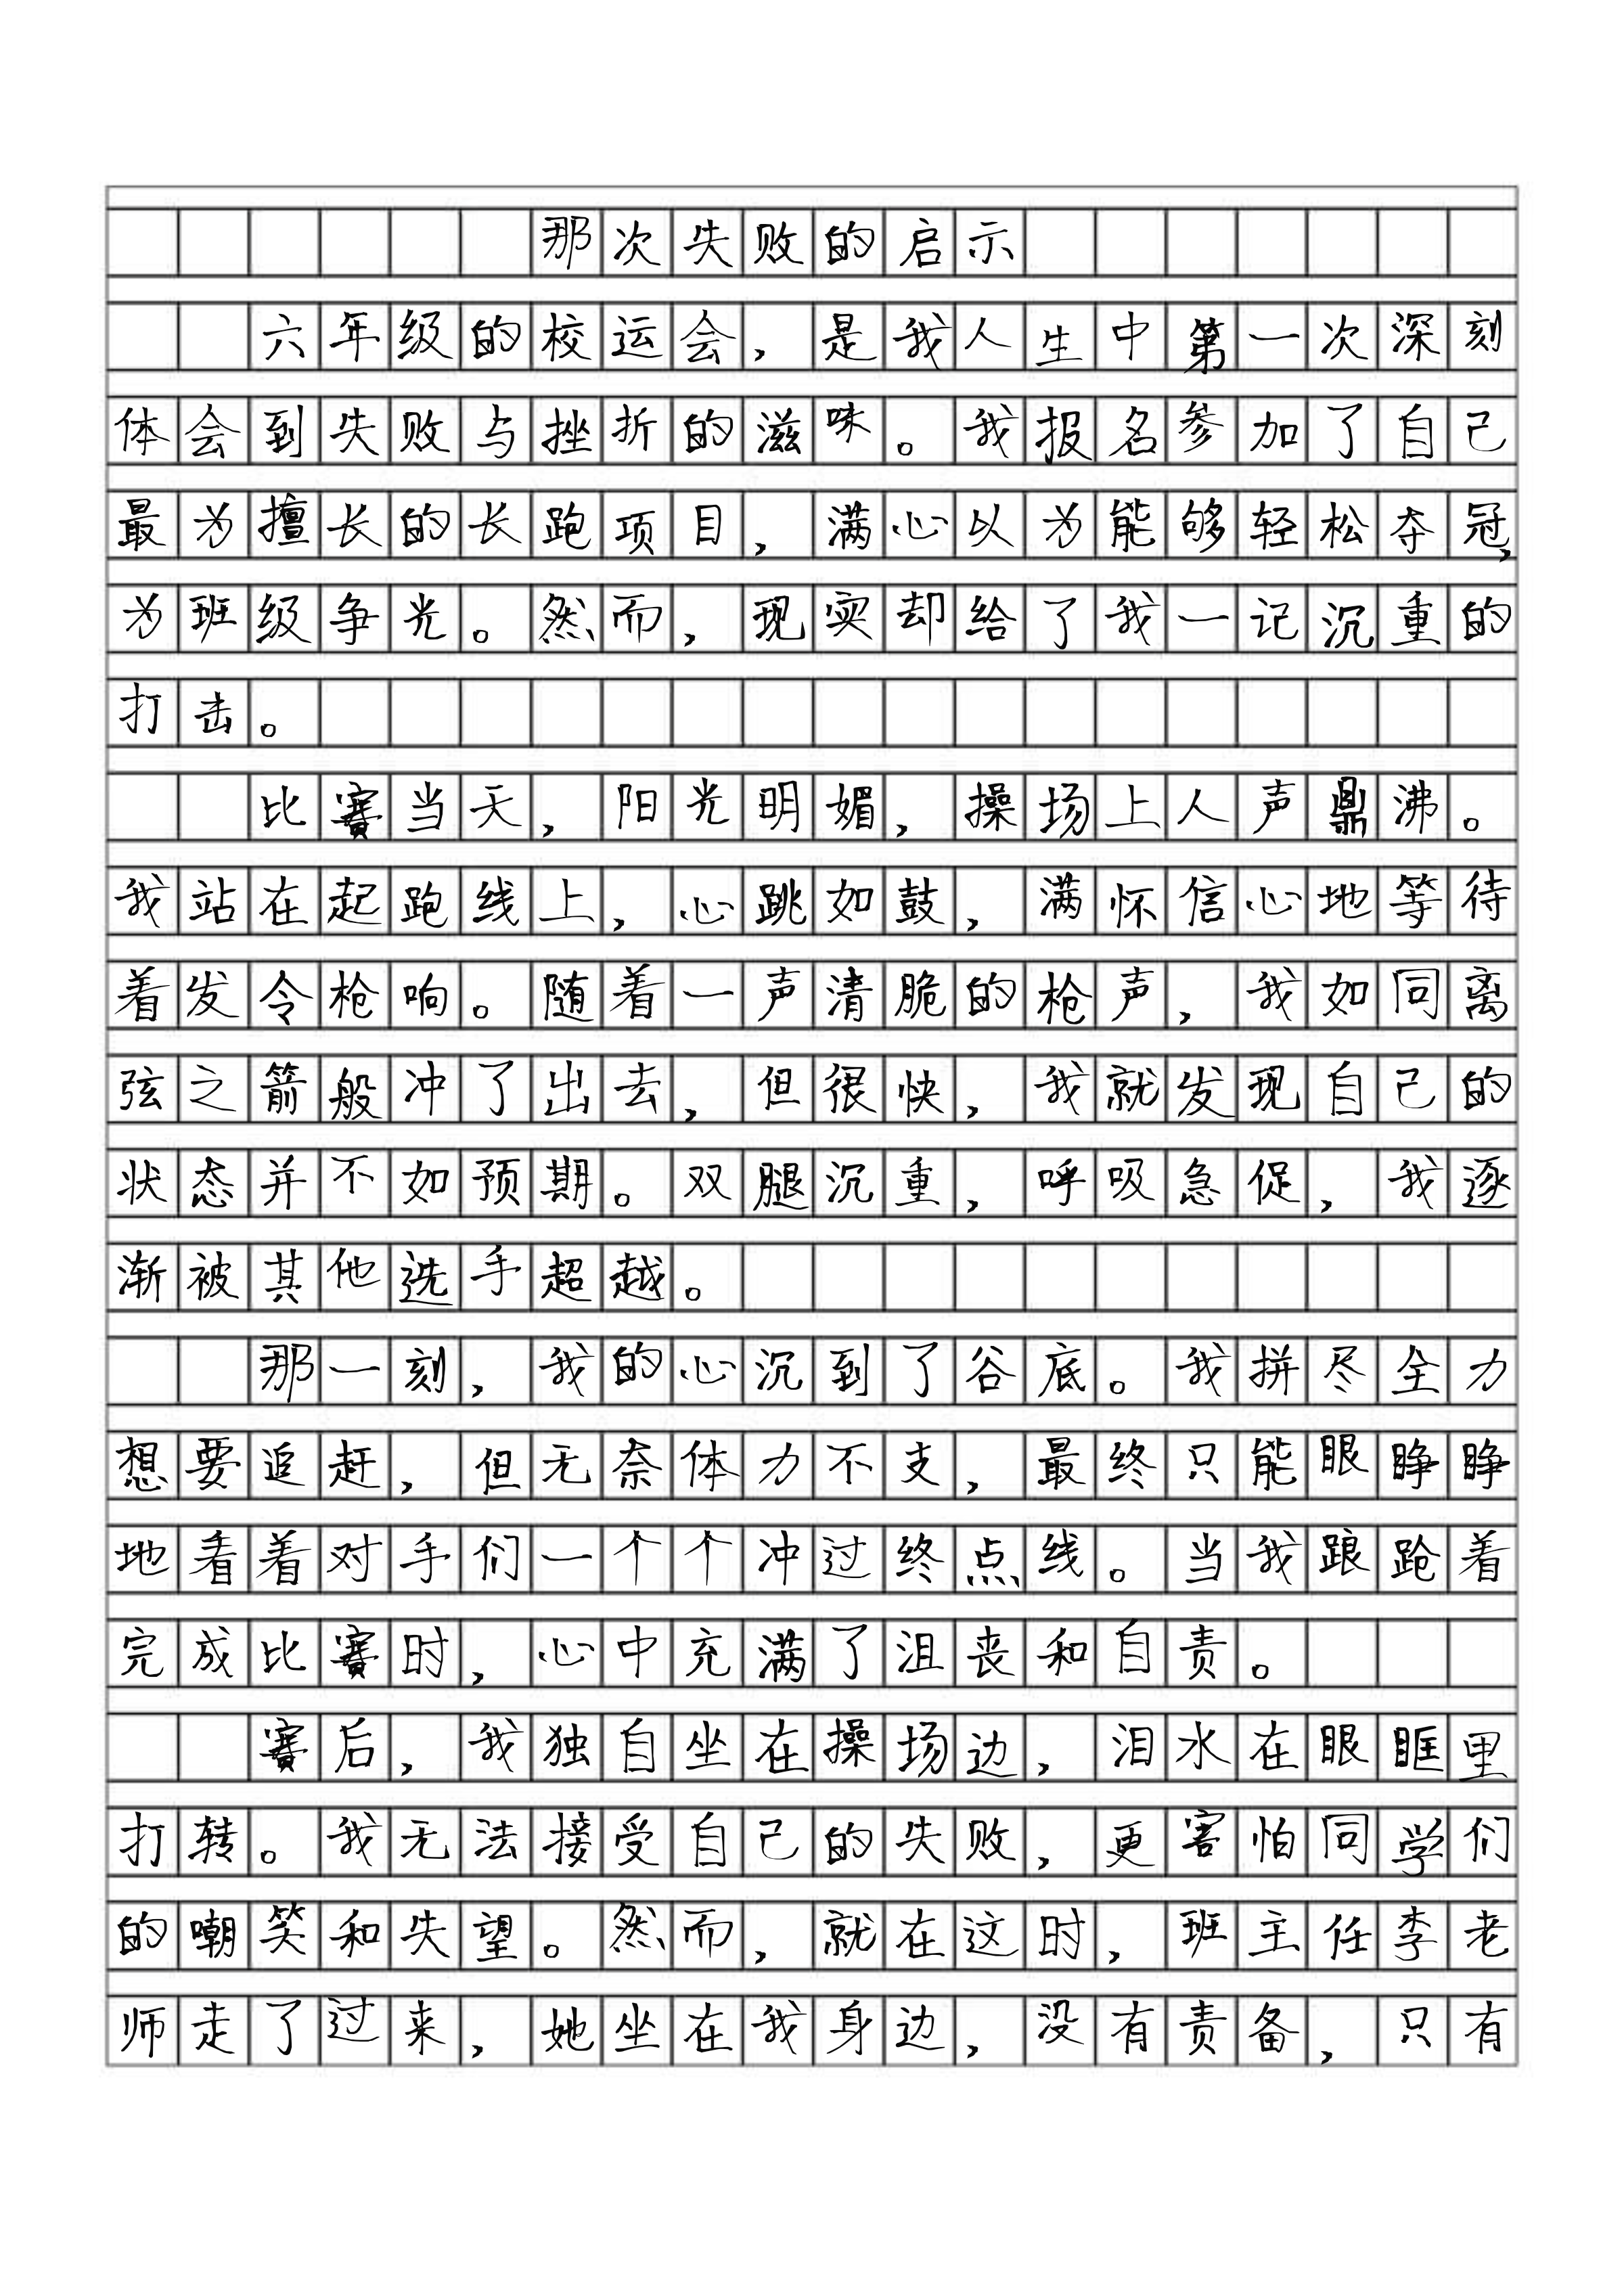 那次失败的启示
六年级的校运会，是我人生中第一次深刻
体会到失败与挫折的滋味。我报名参加了自己
最为擅长的长跑项目，满心以为能够轻松夺冠，
为班级争光。然而，现实却给了我一记沉重的
打击。
比赛当天，阳光明媚，操场上人声鼎沸。
我站在起跑线上，心跳如鼓，满怀信心地等待
着发令枪响。随着一声清脆的枪声，我如同离
弦之箭般冲了出去，但很快，我就发现自己的
状态并不如预期。双腿沉重，呼吸急促，我逐
渐被其他选手超越。
那一刻，我的心沉到了谷底。我拼尽全力
想要追赶，但无奈体力不支，最终只能眼睁睁
地看着对手们一个个冲过终点线。当我踉跄着
完成比赛时，心中充满了沮丧和自责。
赛后，我独自坐在操场边，泪水在眼眶里
打转。我无法接受自己的失败，更害怕同学们
的嘲笑和失望。然而，就在这时，班主任李老
师走了过来，她坐在我身边，没有责备，只有